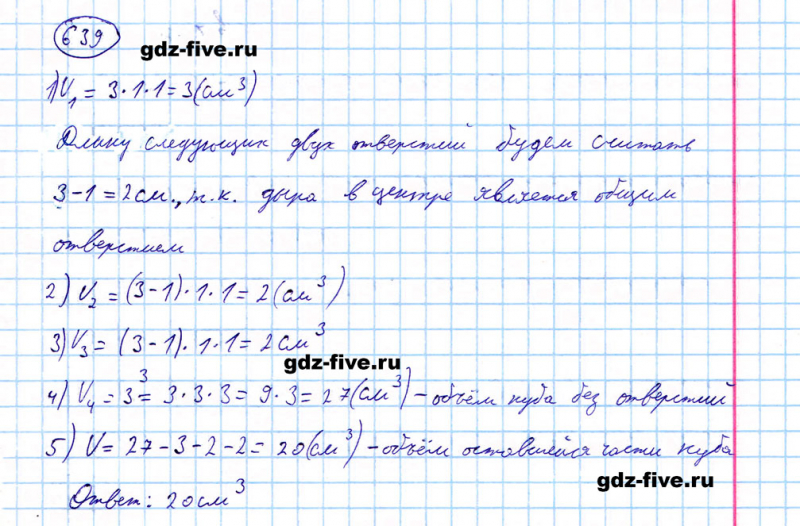 639
gdz-five.ru
1) V₁ = 3·1·1=3(см³)
Длину следующих двух отверстий будем считать
3-1=2см., т.к. дыра в центре является общим
отверстием
2) V₂ = (3-1)·1·1=2(см³)
3) V₃ = (3-1)·1·1=2см³
gdz-five.ru
4) V₄ = 3³ = 3·3·3=9·3=27(см³) - объём куба без отверстий
5) V= 27-3-2-2= 20(см³) - объём оставшейся части куба
gdz-five.ru
Ответ: 20см³